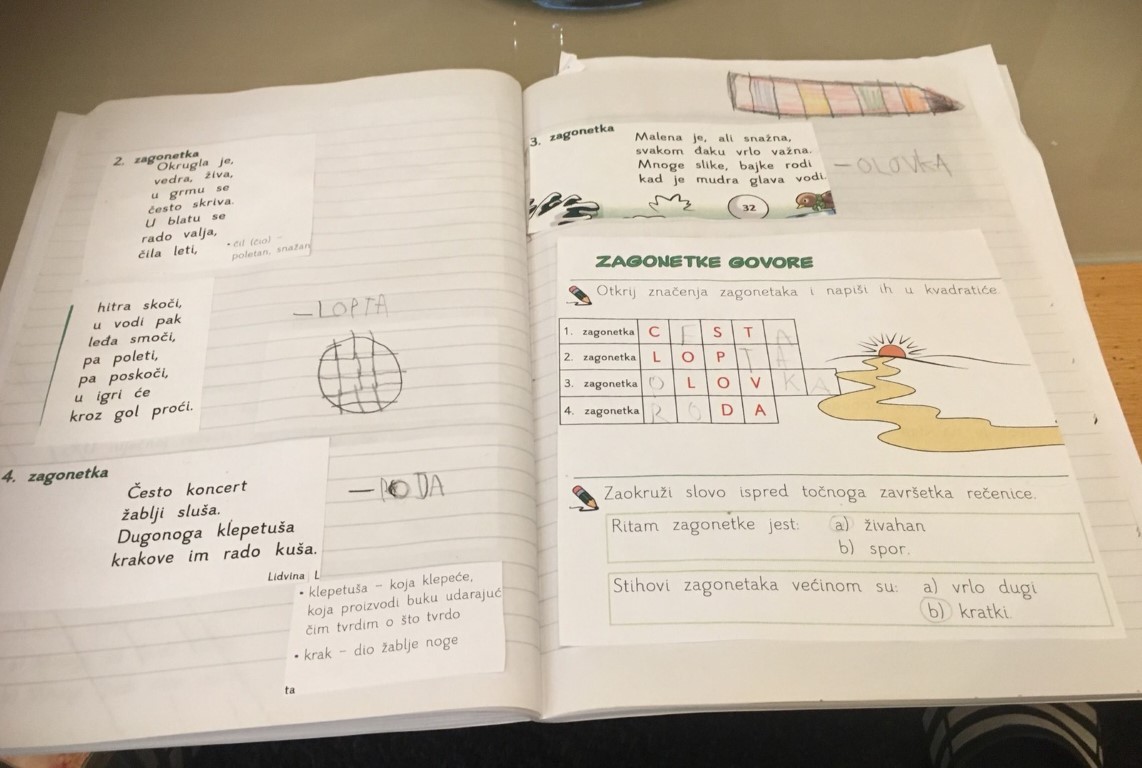 2. zagonetka
Okrugla je,
vedra, živa,
u grmu se
često skriva.
U blatu se
rado valja,
čila leti,
• čil (čio) –
poletan, snažan
hitra skoči,
u vodi pak
leđa smoči,
pa poleti,
pa poskoči,
u igri će
kroz gol proći.
– LOPTA
4. zagonetka
Često koncert
žablji sluša.
Dugonoga klepetuša
krakove im rado kuša.
Lidvina
– RODA
• klepetuša – koja klepeće,
koja proizvodi buku udarajuć
čim tvrdim o što tvrdo
• krak – dio žablje noge
ta
3. zagonetka
Malena je, ali snažna,
svakom đaku vrlo važna.
Mnoge slike, bajke rodi
kad je mudra glava vodi.
– OLOVKA
32
ZAGONETKE GOVORE
Otkrij značenja zagonetaka i napiši ih u kvadratiće.
1. zagonetka C E S T A
2. zagonetka L O P T A
3. zagonetka O L O V K A
4. zagonetka R O D A
Zaokruži slovo ispred točnoga završetka rečenice.
Ritam zagonetke jest: a) živahan
b) spor.
Stihovi zagonetaka većinom su: a) vrlo dugi
b) kratki.